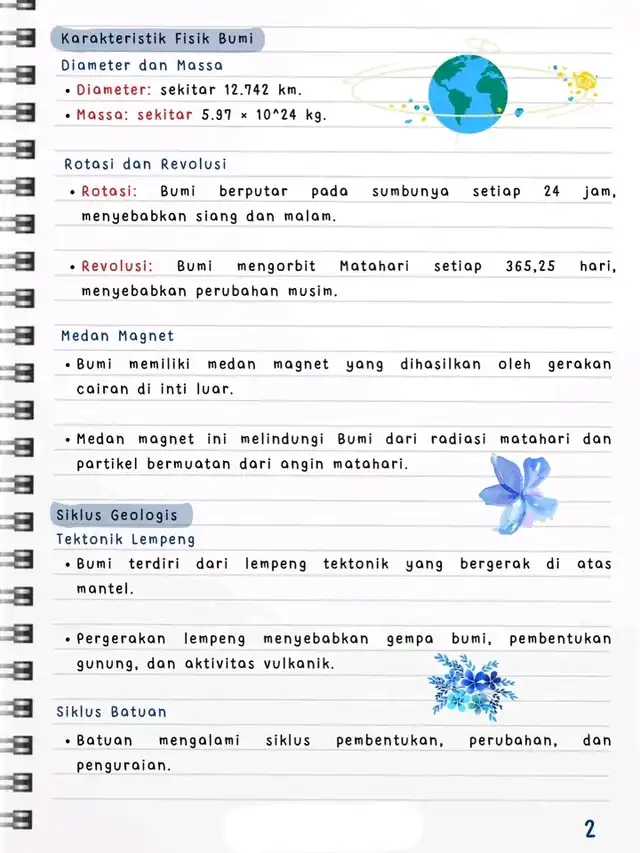 Karakteristik Fisik Bumi
Diameter dan Massa
• Diameter: sekitar 12.742 km.
• Massa: sekitar 5.97 × 10^24 kg.
Rotasi dan Revolusi
• Rotasi: Bumi berputar pada sumbunya setiap 24 jam,
menyebabkan siang dan malam.
• Revolusi: Bumi mengorbit Matahari setiap 365,25 hari,
menyebabkan perubahan musim.
Medan Magnet
• Bumi memiliki medan magnet yang dihasilkan oleh gerakan
cairan di inti luar.
• Medan magnet ini melindungi Bumi dari radiasi matahari dan
partikel bermuatan dari angin matahari.
Siklus Geologis
Tektonik Lempeng
• Bumi terdiri dari lempeng tektonik yang bergerak di atas
mantel.
• Pergerakan lempeng menyebabkan gempa bumi, pembentukan
gunung, dan aktivitas vulkanik.
Siklus Batuan
• Batuan mengalami siklus pembentukan, perubahan, dan
penguraian.
2